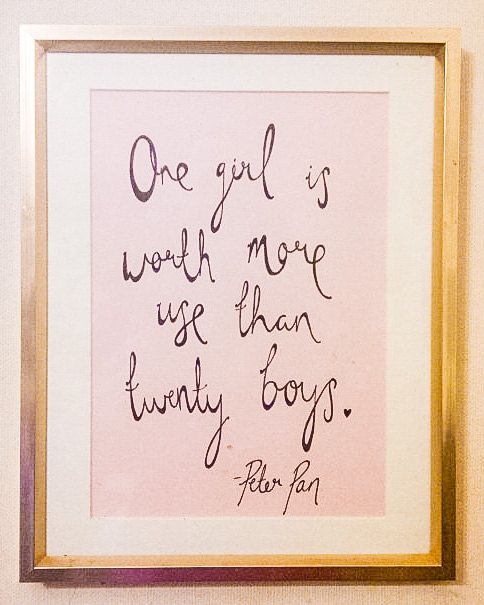 One girl is
worth more
use than
twenty boys.
-Peter Pan